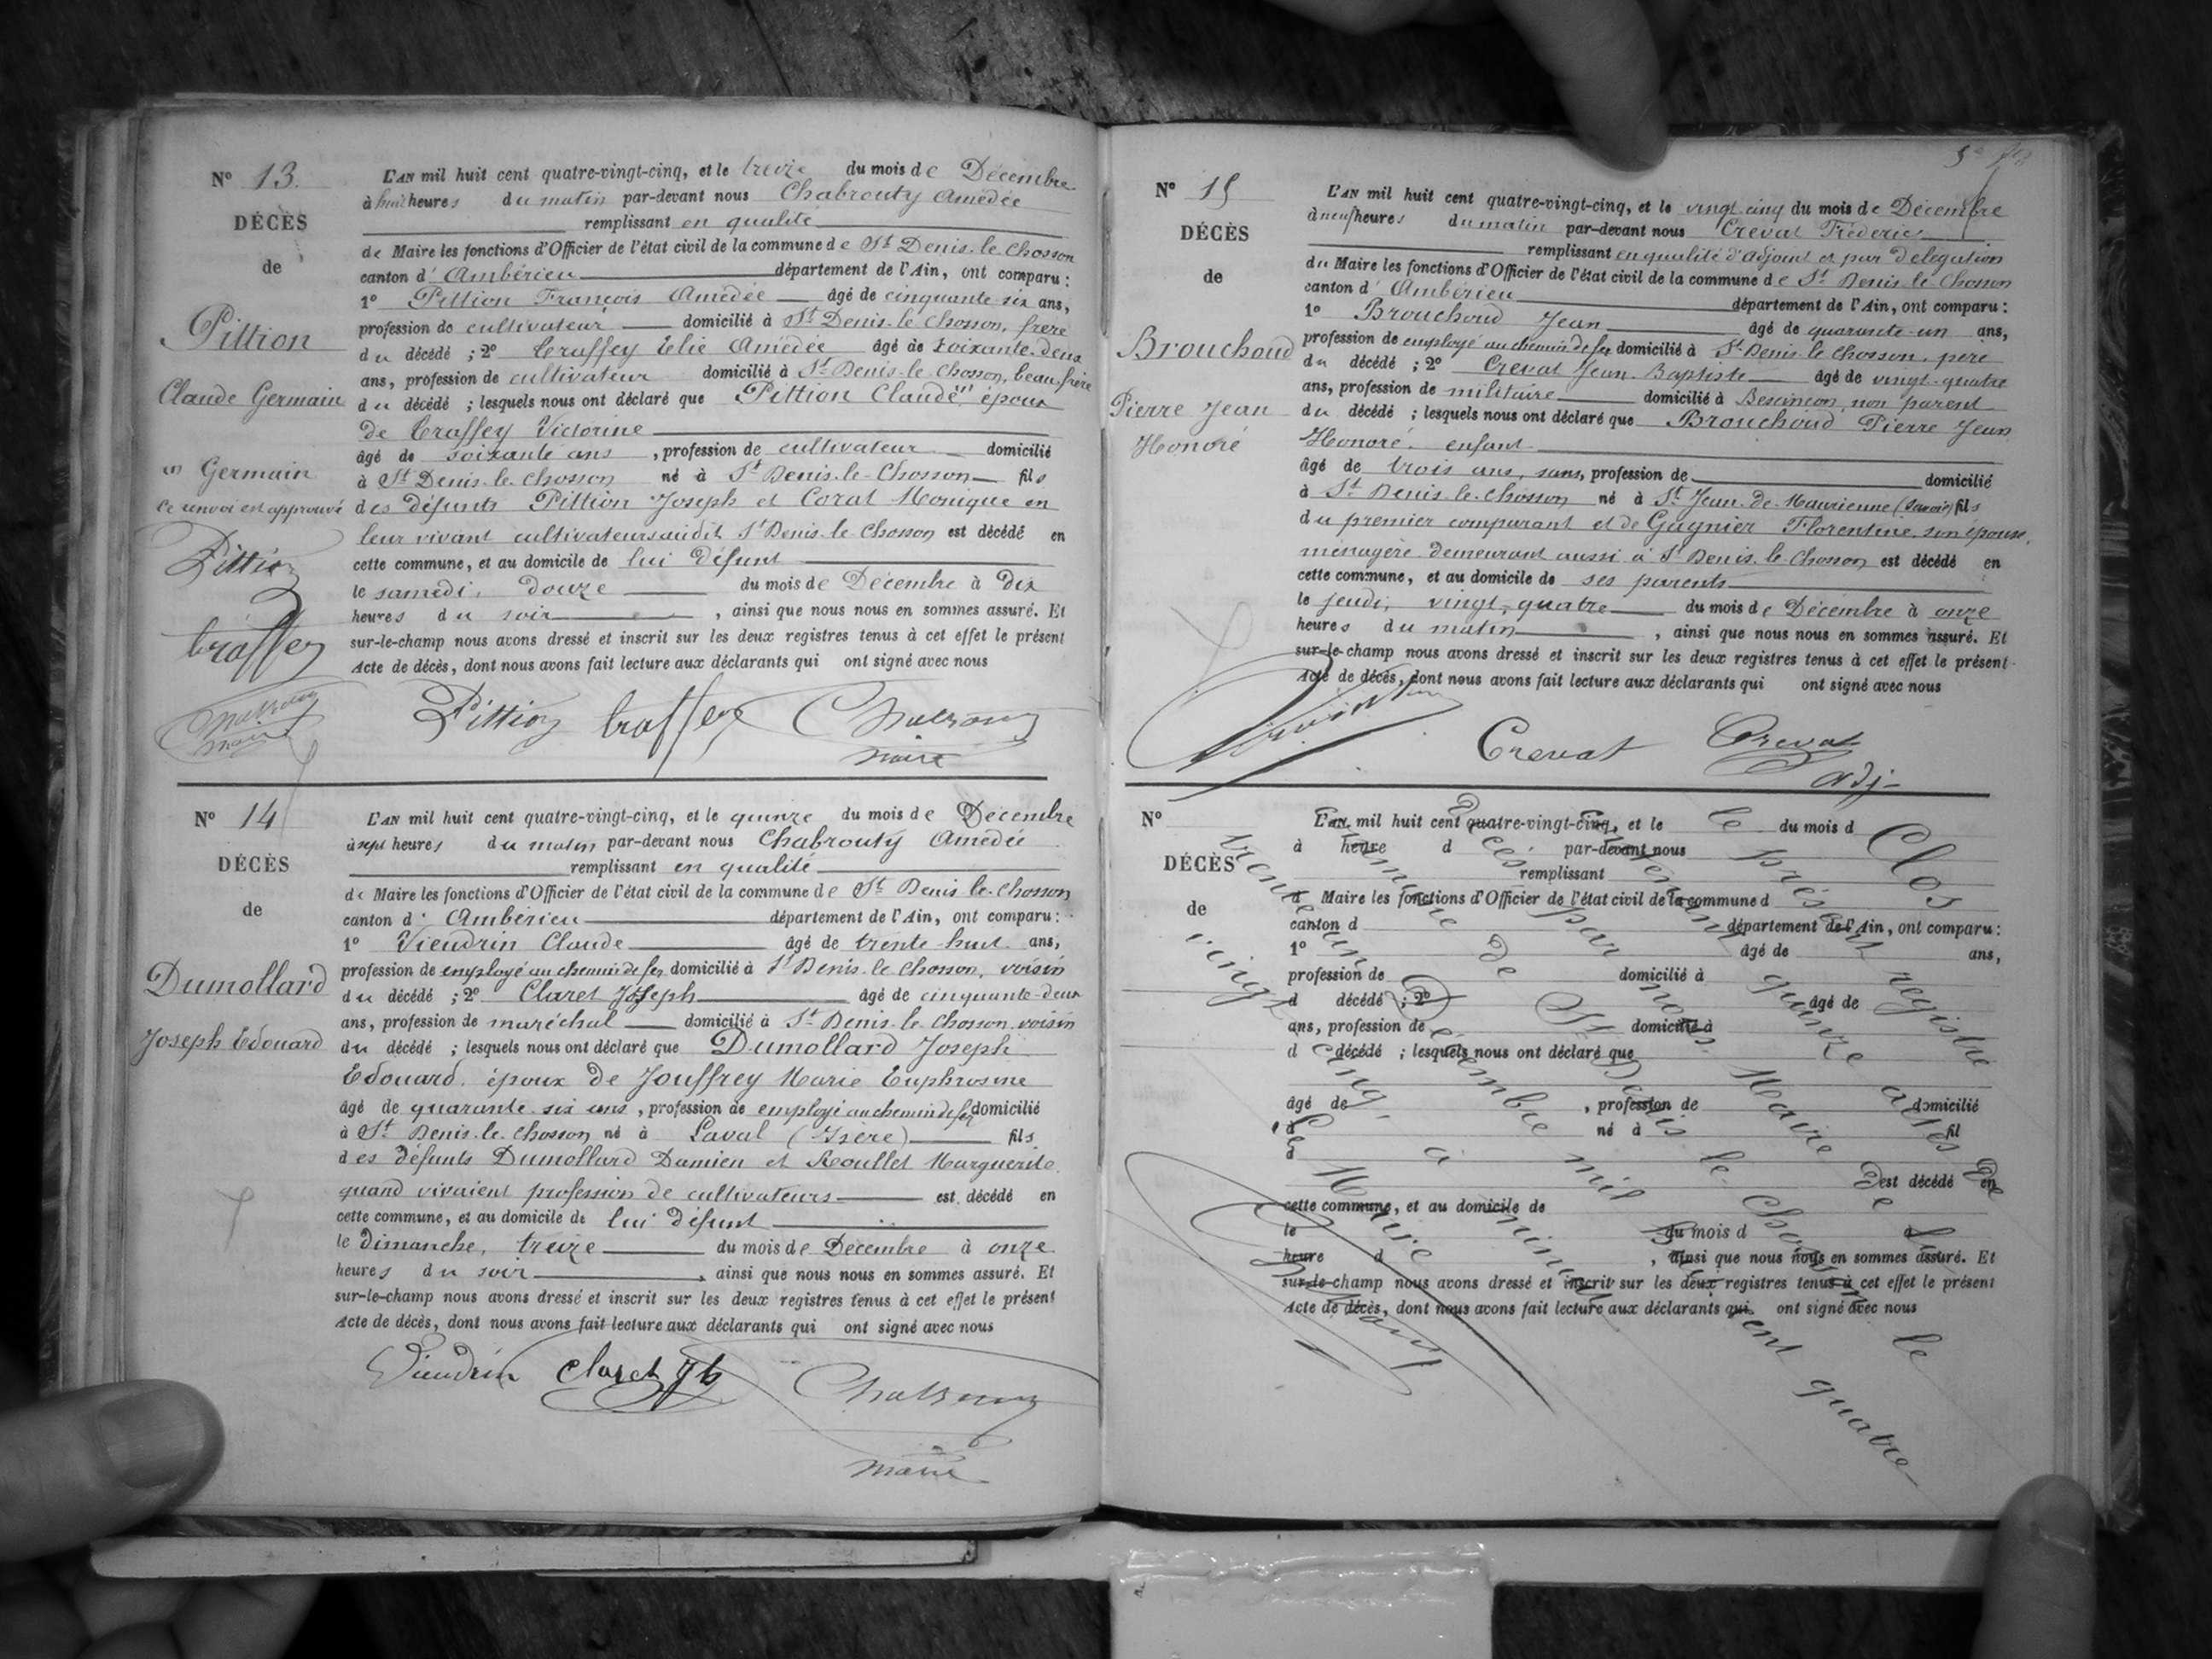 N° 13.
DÉCÈS
de
Pittion
Claude Germain
(1) Germain
ce renvoi est approuvé
Pittion
L'AN mil huit cent quatre-vingt-cinq, et le treize du mois de Décembre
à huit heures du matin par-devant nous Chabrouty Amédée
remplissant en qualité
de Maire les fonctions d'Officier de l'état civil de la commune de St Denis-le-Chosson
canton d'Ambérieu département de l'Ain, ont comparu :
1° Pittion François Amédée âgé de cinquante-six ans,
profession de cultivateur domicilié à St Denis-le-Chosson, frère
du décédé ; 2° Craffey Elie Amédée âgé de soixante-deux
ans, profession de cultivateur domicilié à St Denis-le-Chosson, beau-frère
du décédé ; lesquels nous ont déclaré que Pittion Claude (1) époux
de Craffey Victorine
âgé de soixante ans, profession de cultivateur domicilié
à St Denis-le-Chosson né à St Denis-le-Chosson fils
des défunts Pittion Joseph et Corat Monique en
leur vivant cultivateurs audit St Denis-le-Chosson est décédé en
cette commune, et au domicile de lui défunt
le samedi, douze du mois de Décembre à dix
heures du soir, ainsi que nous nous en sommes assuré. Et
sur-le-champ nous avons dressé et inscrit sur les deux registres tenus à cet effet le présent
Acte de décès, dont nous avons fait lecture aux déclarants qui ont signé avec nous
Pittion Craffey Chabrouty
maire
N° 14
DÉCÈS
de
Dumollard
Joseph Edouard
L'AN mil huit cent quatre-vingt-cinq, et le quinze du mois de Décembre
à sept heures du matin par-devant nous Chabrouty Amédée
remplissant en qualité
de Maire les fonctions d'Officier de l'état civil de la commune de St Denis-le-Chosson
canton d'Ambérieu département de l'Ain, ont comparu :
1° Vieudrin Claude âgé de trente-huit ans,
profession de employé au chemin de fer domicilié à St Denis-le-Chosson, voisin
du décédé ; 2° Claret Joseph âgé de cinquante-deux
ans, profession de maréchal domicilié à St Denis-le-Chosson voisin
du décédé ; lesquels nous ont déclaré que Dumollard Joseph
Edouard, époux de Jouffrey Marie Euphrosine
âgé de quarante-six ans, profession de employé au chemin de fer domicilié
à St Denis-le-Chosson né à Laval (Isère) fils
des défunts Dumollard Damien et Roullet Marguerite
quand vivaient profession de cultivateurs est décédé en
cette commune, et au domicile de lui défunt
le dimanche, treize du mois de Décembre à onze
heures du soir, ainsi que nous nous en sommes assuré. Et
sur-le-champ nous avons dressé et inscrit sur les deux registres tenus à cet effet le présent
Acte de décès, dont nous avons fait lecture aux déclarants qui ont signé avec nous
Vieudrin Claret Jh Chabrouty
maire
N° 15
DÉCÈS
de
Brouchoud
Pierre Jean
Honoré
L'AN mil huit cent quatre-vingt-cinq, et le vingt-cinq du mois de Décembre
à neuf heures du matin par-devant nous Creval Fréderic
remplissant en qualité d'adjoint et par délégation
du Maire les fonctions d'Officier de l'état civil de la commune de St Denis-le-Chosson
canton d'Ambérieu département de l'Ain, ont comparu :
1° Brouchoud Jean âgé de quarante-un ans,
profession de employé au chemin de fer domicilié à St Denis-le-Chosson, père
du décédé ; 2° Creval Jean-Baptiste âgé de vingt-quatre
ans, profession de militaire domicilié à Besançon, non parent
du décédé ; lesquels nous ont déclaré que Brouchoud Pierre Jean
Honoré, enfant
âgé de trois ans, sans, profession de domicilié
à St Denis-le-Chosson né à St Jean-de-Maurienne (Savoie) fils
du premier comparant et de Gagnier Florentine, son épouse,
ménagère demeurant aussi à St Denis-le-Chosson est décédé en
cette commune, et au domicile de ses parents
le jeudi, vingt-quatre du mois de Décembre à onze
heures du matin, ainsi que nous nous en sommes assuré. Et
sur-le-champ nous avons dressé et inscrit sur les deux registres tenus à cet effet le présent
Acte de décès, dont nous avons fait lecture aux déclarants qui ont signé avec nous
Creval Creval
adj.
N°
DÉCÈS
de
L'AN mil huit cent quatre-vingt-cinq, et le du mois d
à heure d par-devant nous
remplissant
d Maire les fonctions d'Officier de l'état civil de la commune d
canton d département de l'Ain, ont comparu :
1° âgé de ans,
profession de domicilié à
d décédé ; 2° âgé de
ans, profession de domicilié à
d décédé ; lesquels nous ont déclaré que
âgé de , profession de domicilié
à né à fil
d
est décédé en
cette commune, et au domicile de
le du mois d
heure d , ainsi que nous nous en sommes assuré. Et
sur-le-champ nous avons dressé et inscrit sur les deux registres tenus à cet effet le présent
Acte de décès, dont nous avons fait lecture aux déclarants qui ont signé avec nous
Clos
le présent registre
contenant quinze actes de
Décès par nous Maire de la
commune de St Denis-le-Chosson le
trente un Décembre mil huit cent quatre
vingt cinq, à minuit
Le Maire